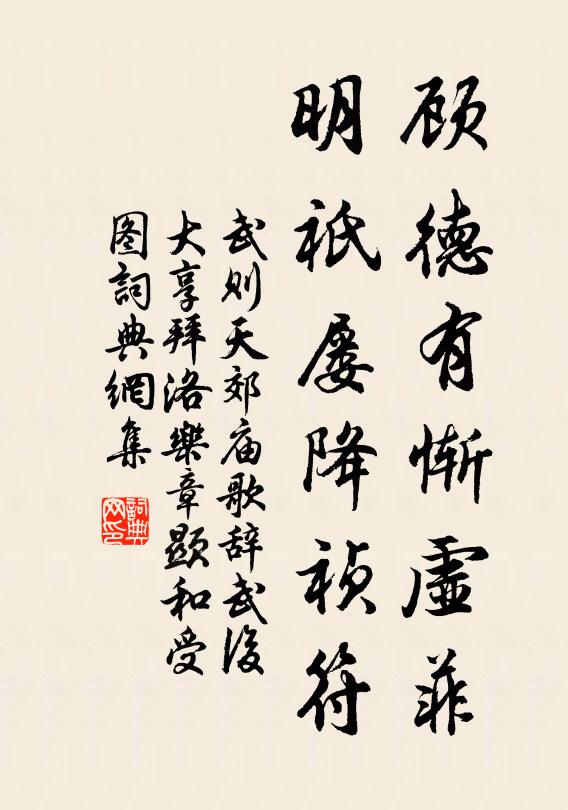 顾德有惭虚菲
明祇屡降祯符
武则天郊庙歌辞武後
大享拜洛樂章顯和受
图詞典網集
詞典网印